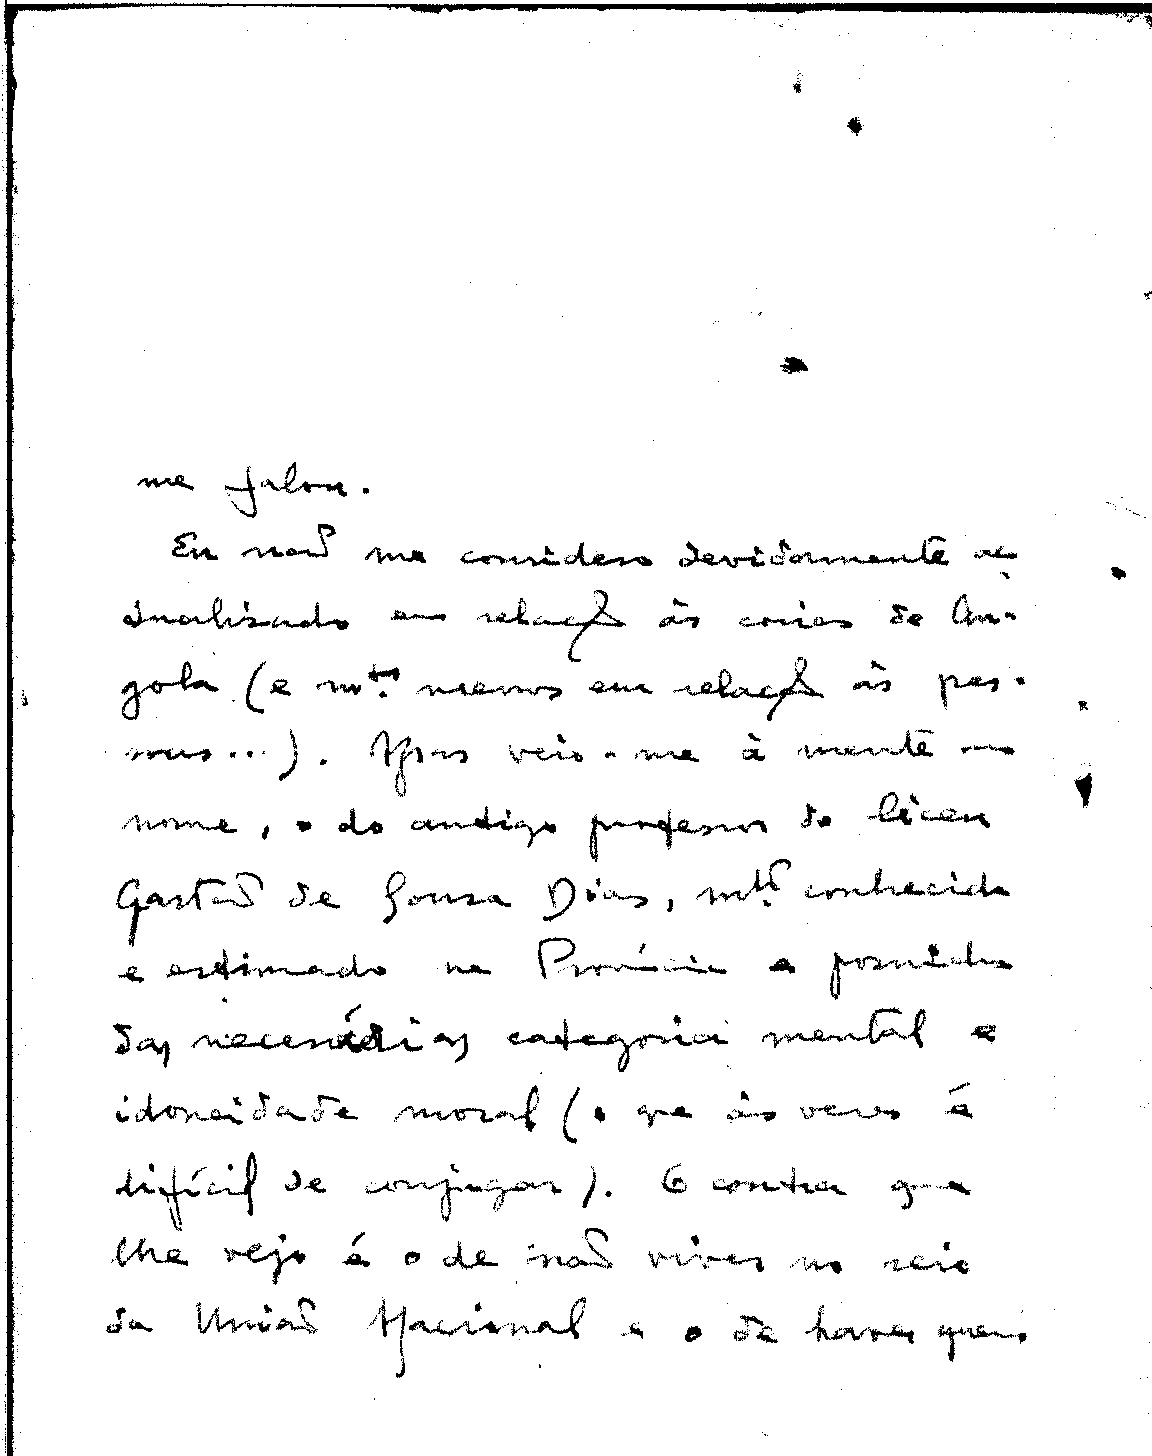 me falou.
Eu não me considero devidamente ac-
tualizado em relação às coisas de An-
gola (e mtº. menos em relação às pes-
soas...). Mas veio-me à mente um
nome, o do antigo professor do liceu
Gastão de Sousa Dias, mtº. conhecido
e estimado na Província e possuidor
das necessárias categoria mental e
idoneidade moral (o que às vezes é
difícil de conjugar). O contra que
lhe vejo é o de não viver no seio
da União Nacional e o de haver quem